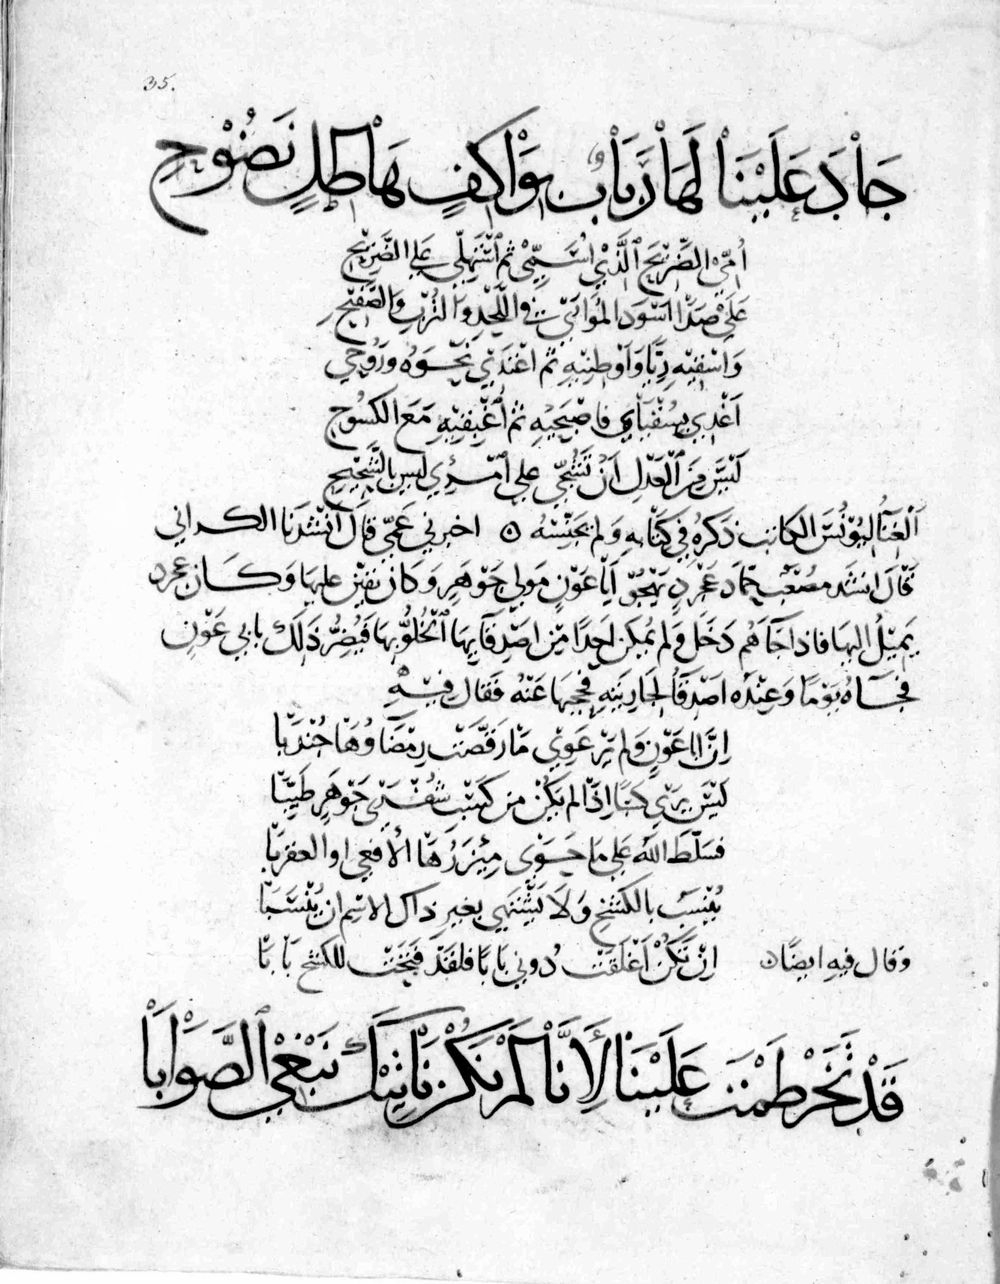 35.
جَادَ عَلَيْنَا لَهَا رَبَابٌ بِوَاكِفٍ هَاطِلٍ نَضُوْحِ
اُمِّي الضَّرِيْحَ الَّذِي اُسَمِّيْ ثم اسْتَهِلِّي على الضَّرِيْحِ
عَلَى صَدَا اسْوَد المُوَارَى في اللَّحْدِ والتُّرْبِ والصَّفِيْحِ
وَاسْقِيْهِ رِيًّا وَاَوْطِنِيْهِ ثم اغْتَدِي نَحْوَهُ ورُوْحِي
اَغْدِي بِسُقْيَايَ فاصْبَحِيْهِ ثم اغْبِقِيْهِ مَعَ الكسُوحِ
لَيْسَ مِنَ الْعَدْلِ اَنْ تَشُحِّي على امْرِئٍ ليسَ بالشَّحِيْحِ
الْغِنَاءُ لِيُوْنُسَ الكاتب ذَكَرَهُ في كِتَابِهِ وَلم يُجَنِّسْهُ ه اخبرني عَمِّي قَالَ انْشَدَنَا الكراني
قَالَ انْشَدَ مُصْعَبٌ لِحَمَّاد عَجْرَدٍ يَهْجُوْ اَبَا عَوْنٍ مَولى جَوْهَرٍ وَكَانَ يُقَيِّنُ عليها وَكَانَ عَجْرَد
يَمِيْلُ اليها فاذا جَاَهُم دَخَلَ وَلم يُمْكِن اَحَدًا مِنْ اصْدِقَائِها الْخُلُوُّ بِها فَيُضِرُّ ذَلك بابي عَوْنٍ
فَجَاءَهُ يَوْمًا وَعِنْدَه اصْدِقَا لجَارِيَتِهِ فحجبها عَنْهُ فَقَال فِيْهِ
اِنَّ ابَا عَوْنٍ وَلَم يَرْعَوِيْ مَا رَقَصَتْ رمْضَاؤُهَا جُنْدَبَا
لَيْسَ يَرَى كَسْبًا اِذَا لم يَكُنْ مِن كَسْبِ شُفْرَيْ جَوْهَرٍ طَيِّبَا
فسَلَّطَ اللهُ على ما حَوَى مِئْزَرُهَا الأفعى او العقربَا
يُنْسَبُ بالكشخِ وَلَا يَشْتَهي بغير ذاك الاسْمِ ان يُنْسَبَا
وَقال فيهِ ايضًا ه اِنْ تَكُنْ اَغْلَقْتَ دُوني بَابًا فلقدْ فتَحْتَ للكشخ بَابَا
قَدْ تَخَرْطَمْتَ عَلَيْنَا لأَنَّا لَمْ نَكُنْ نَاتِيْكَ نَبْغِي الصَّوَابَا